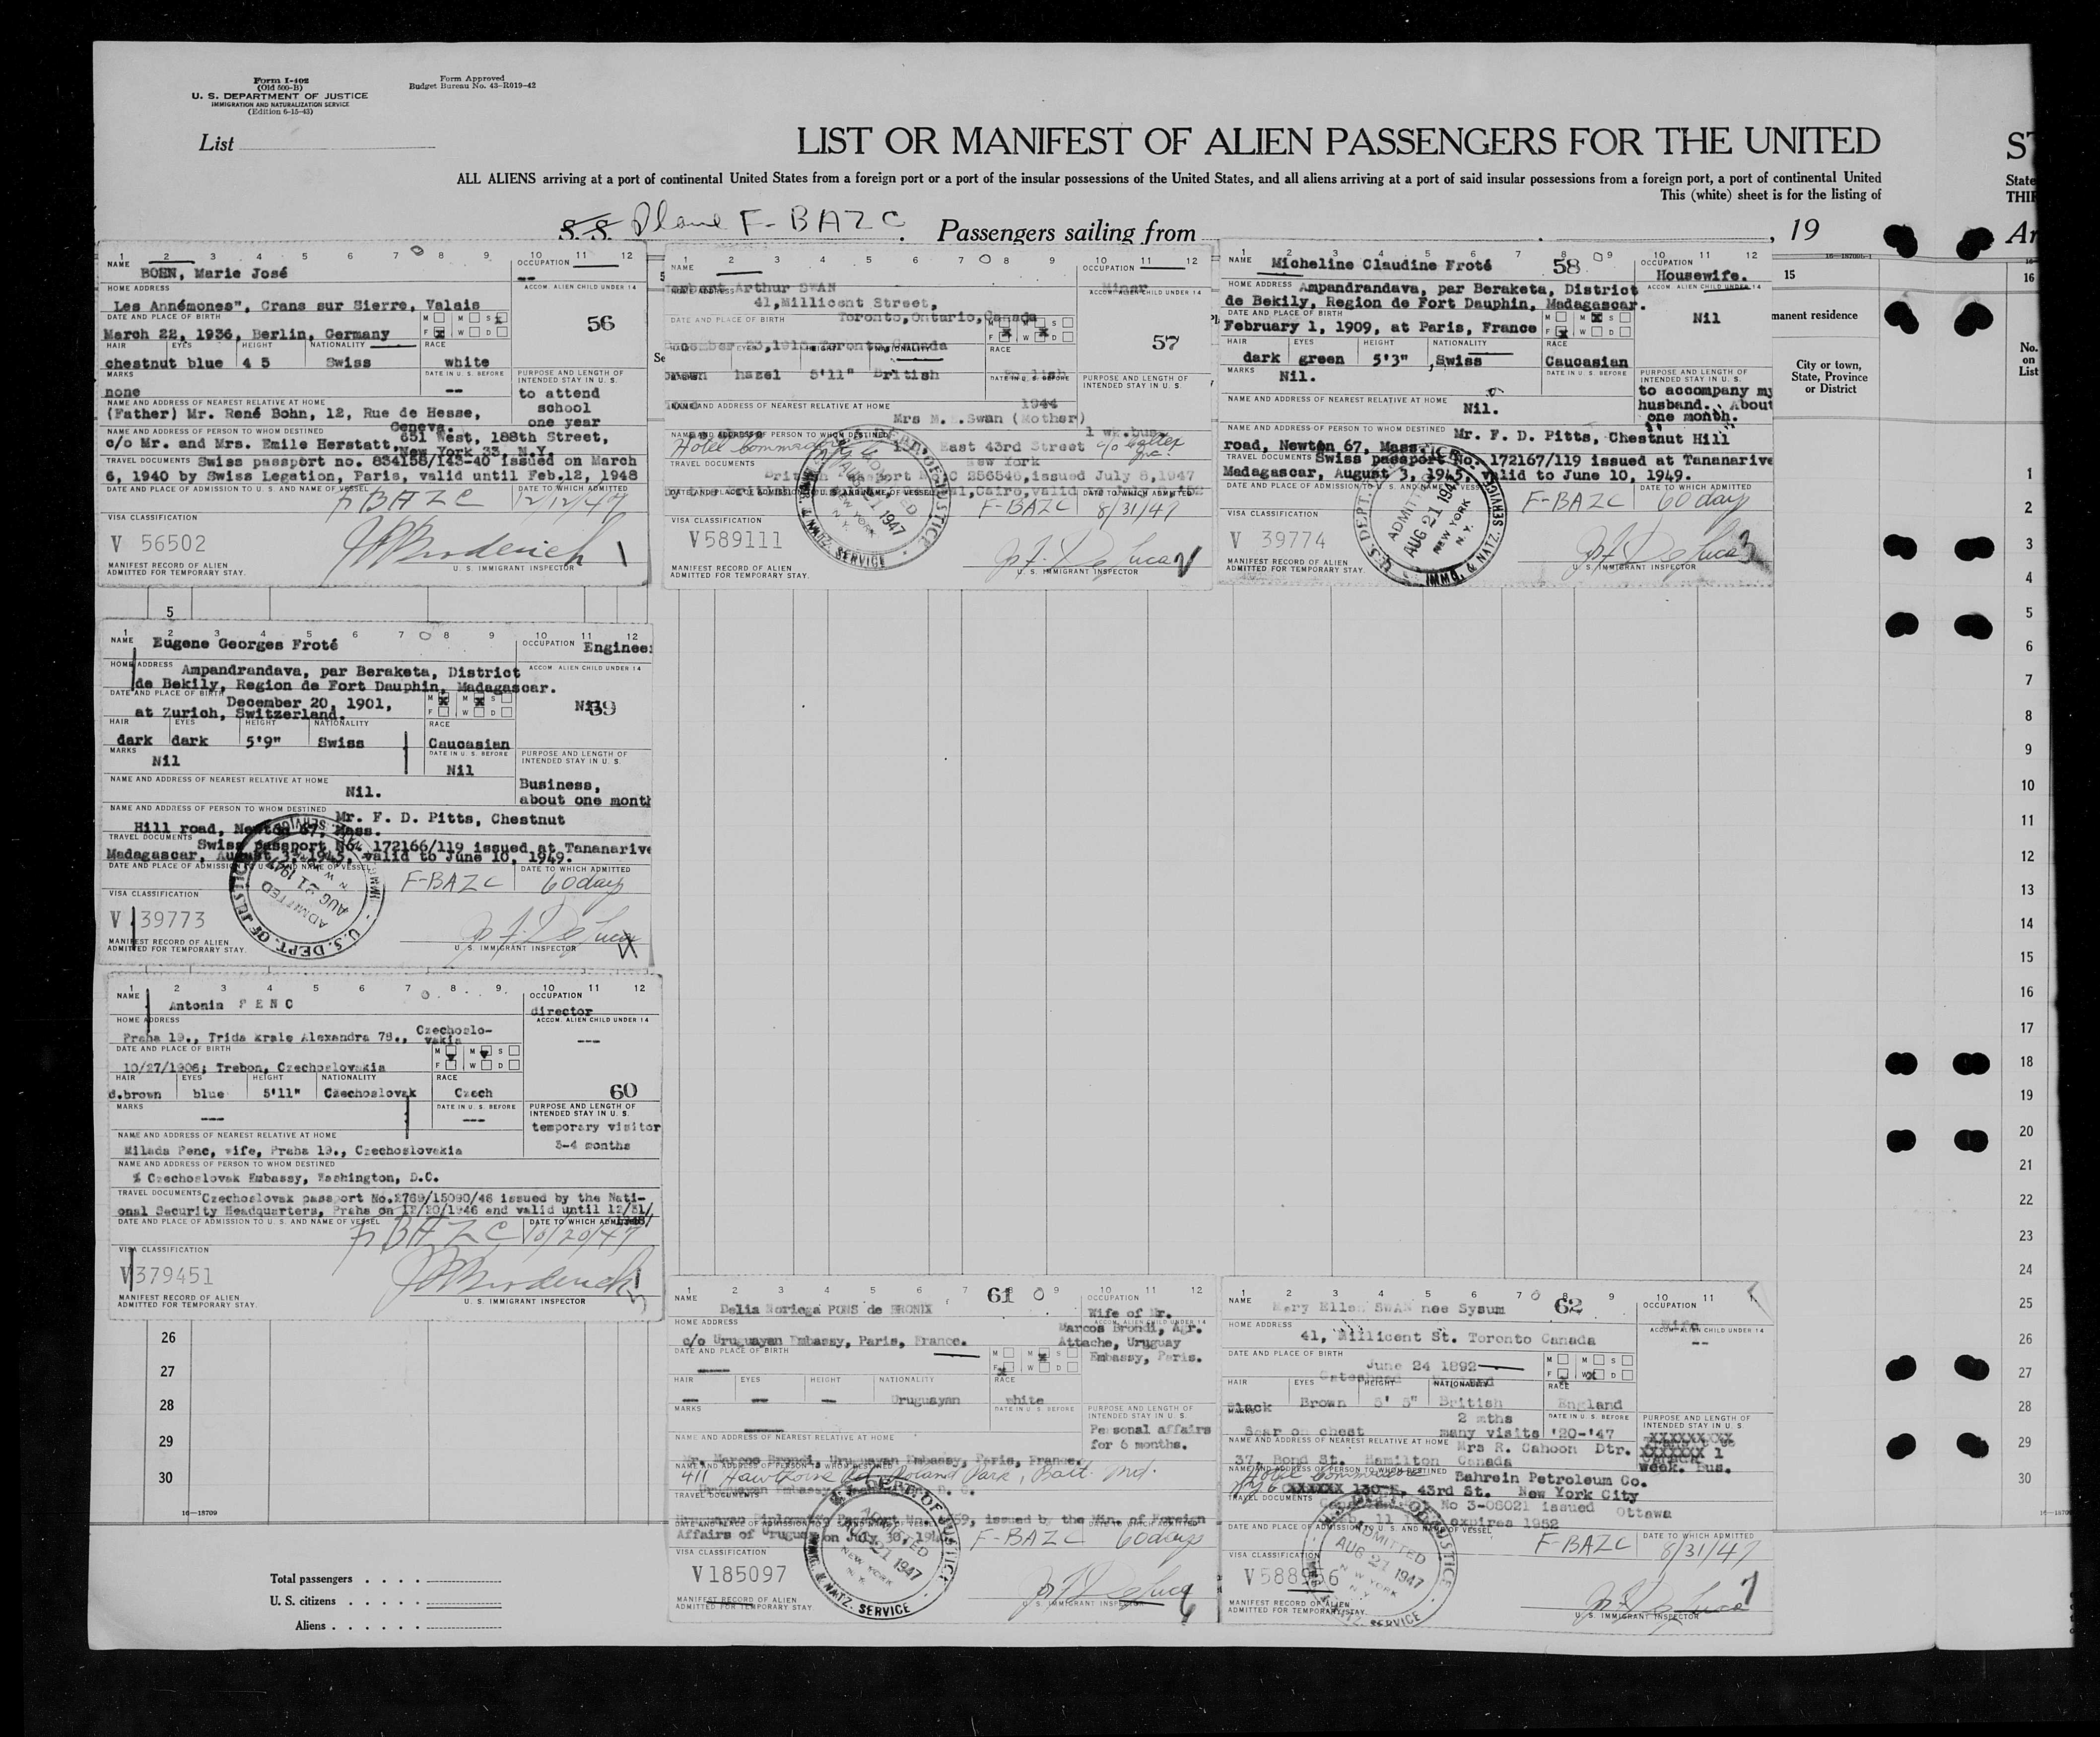 Form I-402
(Old 500-B)
U. S. DEPARTMENT OF JUSTICE
IMMIGRATION AND NATURALIZATION SERVICE
(Edition 6-15-43)
Form Approved
Budget Bureau No. 43-R019-42
List
LIST OR MANIFEST OF ALIEN PASSENGERS FOR THE UNITED
ALL ALIENS arriving at a port of continental United States from a foreign port or a port of the insular possessions of the United States, and all aliens arriving at a port of said insular possessions from a foreign port, a port of continental United
This (white) sheet is for the listing of
S. S. Plane F-BAZC. Passengers sailing from , 19
1 2 3 4 5 6 7 8 9 10 11 12
NAME
BOHN, Marie José
OCCUPATION
--
HOME ADDRESS
Les Annémones", Crans sur Sierre, Valais
ACCOM. ALIEN CHILD UNDER 14
56
DATE AND PLACE OF BIRTH
March 22, 1936, Berlin, Germany
M M S x
F x W D
HAIR EYES HEIGHT NATIONALITY RACE
chestnut blue 4 5 Swiss white
MARKS
none
DATE IN U. S. BEFORE
--
PURPOSE AND LENGTH OF INTENDED STAY IN U. S.
to attend
school
one year
NAME AND ADDRESS OF NEAREST RELATIVE AT HOME
(Father) Mr. René Bohn, 12, Rue de Hesse,
Geneva.
NAME AND ADDRESS OF PERSON TO WHOM DESTINED
c/o Mr. and Mrs. Emile Herstatt 651 West, 188th Street,
New York 33, N.Y.
TRAVEL DOCUMENTS
Swiss passport no. 834158/143-40 issued on March
6, 1940 by Swiss Legation, Paris, valid until Feb.12, 1948
DATE AND PLACE OF ADMISSION TO U. S. AND NAME OF VESSEL
F BAZC
DATE TO WHICH ADMITTED
12/12/47
VISA CLASSIFICATION
V 56502
MANIFEST RECORD OF ALIEN
ADMITTED FOR TEMPORARY STAY.
U. S. IMMIGRANT INSPECTOR
1
1 2 3 4 5 6 7 8 9 10 11 12
NAME
Arthur SWAN
OCCUPATION
HOME ADDRESS
41, Millicent Street,
Toronto, Ontario, Canada
ACCOM. ALIEN CHILD UNDER 14
57
DATE AND PLACE OF BIRTH
Toronto, Canada
HAIR EYES HEIGHT NATIONALITY RACE
hazel 5'11" British English
MARKS
DATE IN U. S. BEFORE
1944
PURPOSE AND LENGTH OF INTENDED STAY IN U. S.
1 wk. bus.
NAME AND ADDRESS OF NEAREST RELATIVE AT HOME
Mrs M. Swan (Mother)
NAME AND ADDRESS OF PERSON TO WHOM DESTINED
East 43rd Street
New York
TRAVEL DOCUMENTS
C 256546, issued July 8, 1947
DATE AND PLACE OF ADMISSION TO U. S. AND NAME OF VESSEL
F-BAZC
DATE TO WHICH ADMITTED
8/31/47
VISA CLASSIFICATION
V589111
MANIFEST RECORD OF ALIEN
ADMITTED FOR TEMPORARY STAY.
U. S. DEPT. OF JUSTICE
ADMITTED
AUG 21 1947
NEW YORK
N. Y.
IMMG. & NATZ. SERVICE
J. F. DeLuca 2
U. S. IMMIGRANT INSPECTOR
1 2 3 4 5 6 7 8 9 10 11 12
NAME
Micheline Claudine Froté
58
OCCUPATION
Housewife.
HOME ADDRESS
Ampandrandava, par Beraketa, District
de Bekily, Region de Fort Dauphin, Madagascar.
ACCOM. ALIEN CHILD UNDER 14
Nil
DATE AND PLACE OF BIRTH
February 1, 1909, at Paris, France
M M x S
F x W D
HAIR EYES HEIGHT NATIONALITY RACE
dark green 5'3" Swiss Caucasian
MARKS
Nil.
DATE IN U. S. BEFORE
PURPOSE AND LENGTH OF INTENDED STAY IN U. S.
to accompany my
husband. About
one month.
NAME AND ADDRESS OF NEAREST RELATIVE AT HOME
Nil.
NAME AND ADDRESS OF PERSON TO WHOM DESTINED
Mr. F. D. Pitts, Chestnut Hill
road, Newton 67, Mass.
TRAVEL DOCUMENTS
Swiss passport No. 172167/119 issued at Tananarive
Madagascar, August 3, 1945, valid to June 10, 1949.
DATE AND PLACE OF ADMISSION TO U. S. AND NAME OF VESSEL
F-BAZC
DATE TO WHICH ADMITTED
60 days
VISA CLASSIFICATION
V 39774
MANIFEST RECORD OF ALIEN
ADMITTED FOR TEMPORARY STAY.
U. S. DEPT. OF JUSTICE
ADMITTED
AUG 21 1947
NEW YORK
N. Y.
IMMG. & NATZ. SERVICE
J. F. DeLuca 3
U. S. IMMIGRANT INSPECTOR
15
manent residence
City or town,
State, Province
or District
1 2 3 4 5 6 7 8 9 10 11 12
NAME
Eugene Georges Froté
OCCUPATION
Enginee
HOME ADDRESS
Ampandrandava, par Beraketa, District
de Bekily, Region de Fort Dauphin, Madagascar.
ACCOM. ALIEN CHILD UNDER 14
Nil
59
DATE AND PLACE OF BIRTH
December 20, 1901,
at Zurich, Switzerland.
M x M x S
F W D
HAIR EYES HEIGHT NATIONALITY RACE
dark dark 5'9" Swiss Caucasian
MARKS
Nil
DATE IN U. S. BEFORE
Nil
PURPOSE AND LENGTH OF INTENDED STAY IN U. S.
Business,
about one month
NAME AND ADDRESS OF NEAREST RELATIVE AT HOME
Nil.
NAME AND ADDRESS OF PERSON TO WHOM DESTINED
Mr. F. D. Pitts, Chestnut
Hill road, Newton 67, Mass.
TRAVEL DOCUMENTS
Swiss passport No. 172166/119 issued at Tananarive
Madagascar, August 3, 1945, valid to June 10, 1949.
DATE AND PLACE OF ADMISSION TO U. S. AND NAME OF VESSEL
F-BAZC
DATE TO WHICH ADMITTED
60 days
VISA CLASSIFICATION
V 39773
MANIFEST RECORD OF ALIEN
ADMITTED FOR TEMPORARY STAY.
U. S. DEPT. OF JUSTICE
ADMITTED
AUG 21 1947
J. F. DeLuca 4
U. S. IMMIGRANT INSPECTOR
1 2 3 4 5 6 7 8 9 10 11 12
NAME
Antonin PENC
OCCUPATION
director
HOME ADDRESS
Praha 19., Trida krale Alexandra 78., Czechoslo-
vakia
ACCOM. ALIEN CHILD UNDER 14
---
DATE AND PLACE OF BIRTH
10/27/1906; Trebon, Czechoslovakia
60
HAIR EYES HEIGHT NATIONALITY RACE
d.brown blue 5'11" Czechoslovak Czech
MARKS
---
DATE IN U. S. BEFORE
---
PURPOSE AND LENGTH OF INTENDED STAY IN U. S.
temporary visitor
3-4 months
NAME AND ADDRESS OF NEAREST RELATIVE AT HOME
Milada Penc, wife, Praha 19., Czechoslovakia
NAME AND ADDRESS OF PERSON TO WHOM DESTINED
% Czechoslovak Embassy, Washington, D.C.
TRAVEL DOCUMENTS
Czechoslovak passport No.2769/15090/46 issued by the Nati-
onal Security Headquarters, Praha on 12/20/1946 and valid until 12/31/
1948/
DATE AND PLACE OF ADMISSION TO U. S. AND NAME OF VESSEL
F BAZC
DATE TO WHICH ADMITTED
10/20/47
VISA CLASSIFICATION
V379451
MANIFEST RECORD OF ALIEN
ADMITTED FOR TEMPORARY STAY.
5
U. S. IMMIGRANT INSPECTOR
1 2 3 4 5 6 7 8 9 10 11 12
NAME
Delia Noriega PONS de BRONDI
61
OCCUPATION
Wife of Mr.
Marcos Brondi, Agr.
Attache, Uruguay
Embassy, Paris.
HOME ADDRESS
c/o Uruguayan Embassy, Paris, France.
ACCOM. ALIEN CHILD UNDER 14
DATE AND PLACE OF BIRTH
HAIR EYES HEIGHT NATIONALITY RACE
Uruguayan white
MARKS
DATE IN U. S. BEFORE
PURPOSE AND LENGTH OF INTENDED STAY IN U. S.
Personal affairs
for 6 months.
NAME AND ADDRESS OF NEAREST RELATIVE AT HOME
Mr. Marcos Brondi, Uruguayan Embassy, Paris, France.
NAME AND ADDRESS OF PERSON TO WHOM DESTINED
411 Hawthorne Rd. Roland Park, Balt. Md.
TRAVEL DOCUMENTS
issued by the Min. of Foreign
Affairs of Uruguay on July 30, 194
F-BAZC
60 days
VISA CLASSIFICATION
V185097
MANIFEST RECORD OF ALIEN
ADMITTED FOR TEMPORARY STAY
DEPT. OF JUSTICE
ADMITTED
21 1947
NEW YORK
N. Y.
IMMG. & NATZ. SERVICE
J. F. DeLuca 6
U. S. IMMIGRANT INSPECTOR
1 2 3 4 5 6 7 8 9 10 11 12
NAME
Mary Ellen SWAN nee Sysum
62
OCCUPATION
HOME ADDRESS
41, Millicent St. Toronto Canada
ACCOM. ALIEN CHILD UNDER 14
--
DATE AND PLACE OF BIRTH
June 24 1892
HAIR EYES HEIGHT NATIONALITY RACE
Black Brown 5' 5" British England
MARKS
Scar on chest
2 mths
many visits '20-'47
DATE IN U. S. BEFORE
PURPOSE AND LENGTH OF INTENDED STAY IN U. S.
1
week. Bus.
NAME AND ADDRESS OF NEAREST RELATIVE AT HOME
Mrs R. Cahoon Dtr.
37, Bond St. Hamilton Canada
NAME AND ADDRESS OF PERSON TO WHOM DESTINED
Bahrein Petroleum Co.
43rd St. New York City
TRAVEL DOCUMENTS
No 3-08021 issued Ottawa
expires 1952
DATE AND PLACE OF ADMISSION TO U. S. AND NAME OF VESSEL
F-BAZC
DATE TO WHICH ADMITTED
8/31/47
VISA CLASSIFICATION
V588956
MANIFEST RECORD OF ALIEN
ADMITTED FOR TEMPORARY STAY.
ADMITTED
AUG 21 1947
NEW YORK
N. Y.
SERVICE
J. F. DeLuca 7
U. S. IMMIGRANT INSPECTOR
5
26
27
28
29
30
16—18709
Total passengers . . . .
U. S. citizens . . . . .
Aliens . . . . . .
ST
State
THI
Ar
16
No.
on
List
1
2
3
4
5
6
7
8
9
10
11
12
13
14
15
16
17
18
19
20
21
22
23
24
25
26
27
28
29
30